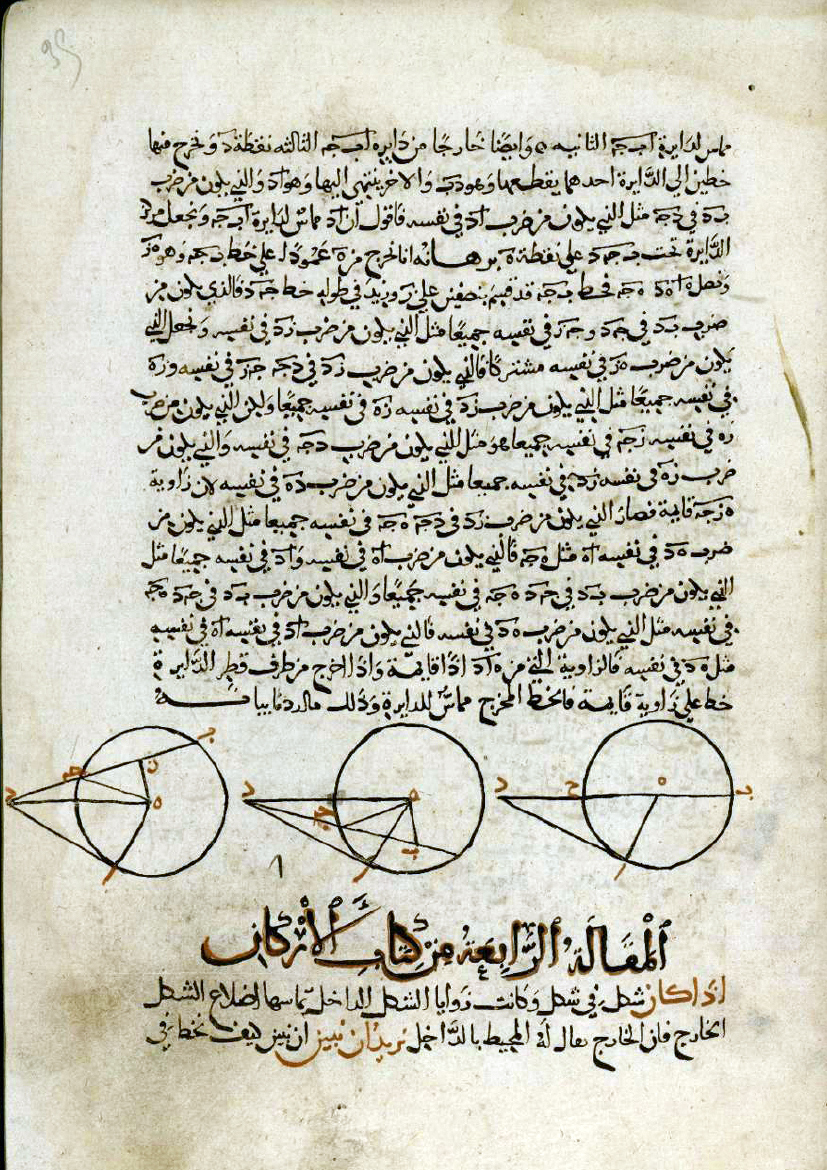 مماس لدايرة ا ب جـ الثانيه ٥ وايضا خارجا من دايره ا ب جـ الثالثه نقطة د ونخرج منها
خطين الي الدايرة احدهما يقطعها وهو د ب والاخر ينتهي اليها وهو ا د والذي يكون من ضرب
ب د في د جـ مثل الذي يكون من ضرب ا د في نفسه فاقول ان ا د مماس لدايرة ا ب جـ ونجعل مركز
الدايرة تحت ب جـ د علي نقطة ه برهانه انا نخرج من ه عمودا علي خط ب جـ وهو ه ز
ونصل ه ا ه د ه جـ فخط ب جـ قد قسم بنصفين علي ز وزيد في طوله خط جـ د فالذي يكون من
ضرب ب د في جـ د و جـ ز في نفسه جميعا مثل الذي يكون من ضرب ز د في نفسه ونجعل الذي
يكون من ضرب ه ز في نفسه مشتركا فالذي يكون من ضرب ب د في د جـ جـ ز في نفسه و ز ه
في نفسه جميعا مثل الذي يكون من ضرب ز د في نفسه ز ه في نفسه جميعا ولكن الذي يكون من ضرب
ز ه في نفسه ز جـ في نفسه جميعا هو مثل الذي يكون من ضرب ه جـ في نفسه والذي يكون من
ضرب ز ه في نفسه ز د في نفسه جميعا مثل الذي يكون من ضرب د ه في نفسه لان زاوية
ه ز جـ قايمة فصار الذي يكون من ضرب ب د في د جـ ه جـ في نفسه جميعا مثل الذي يكون من
ضرب ه د في نفسه ا ه مثل ه جـ فالذي يكون من ضرب ا ه في نفسه و ا د في نفسه جميعا مثل
الذي يكون من ضرب ب د في جـ د ه جـ في نفسه جميعا والذي يكون من ضرب ب د في جـ د ه جـ
في نفسه مثل الذي يكون من ضرب ه د في نفسه فالذي يكون من ضرب ا د في نفسه ا ه في نفسه
مثل ه د في نفسه فالزاوية التي من ه ا د اذا قايمة واذا اخرج من طرف قطر الدايرة
خط علي زاوية قايمة فالخط المخرج مماس للدايرة وذلك ما اردنا بيانه
المقالة الرابعة من كتاب الأركان
اذا كان شكل في شكل وكانت زوايا الشكل الداخل يماسها اضلاع الشكل
الخارج فان الخارج يقال له المحيط بالداخل نريد ان نبين ان نبين كيف نخط في